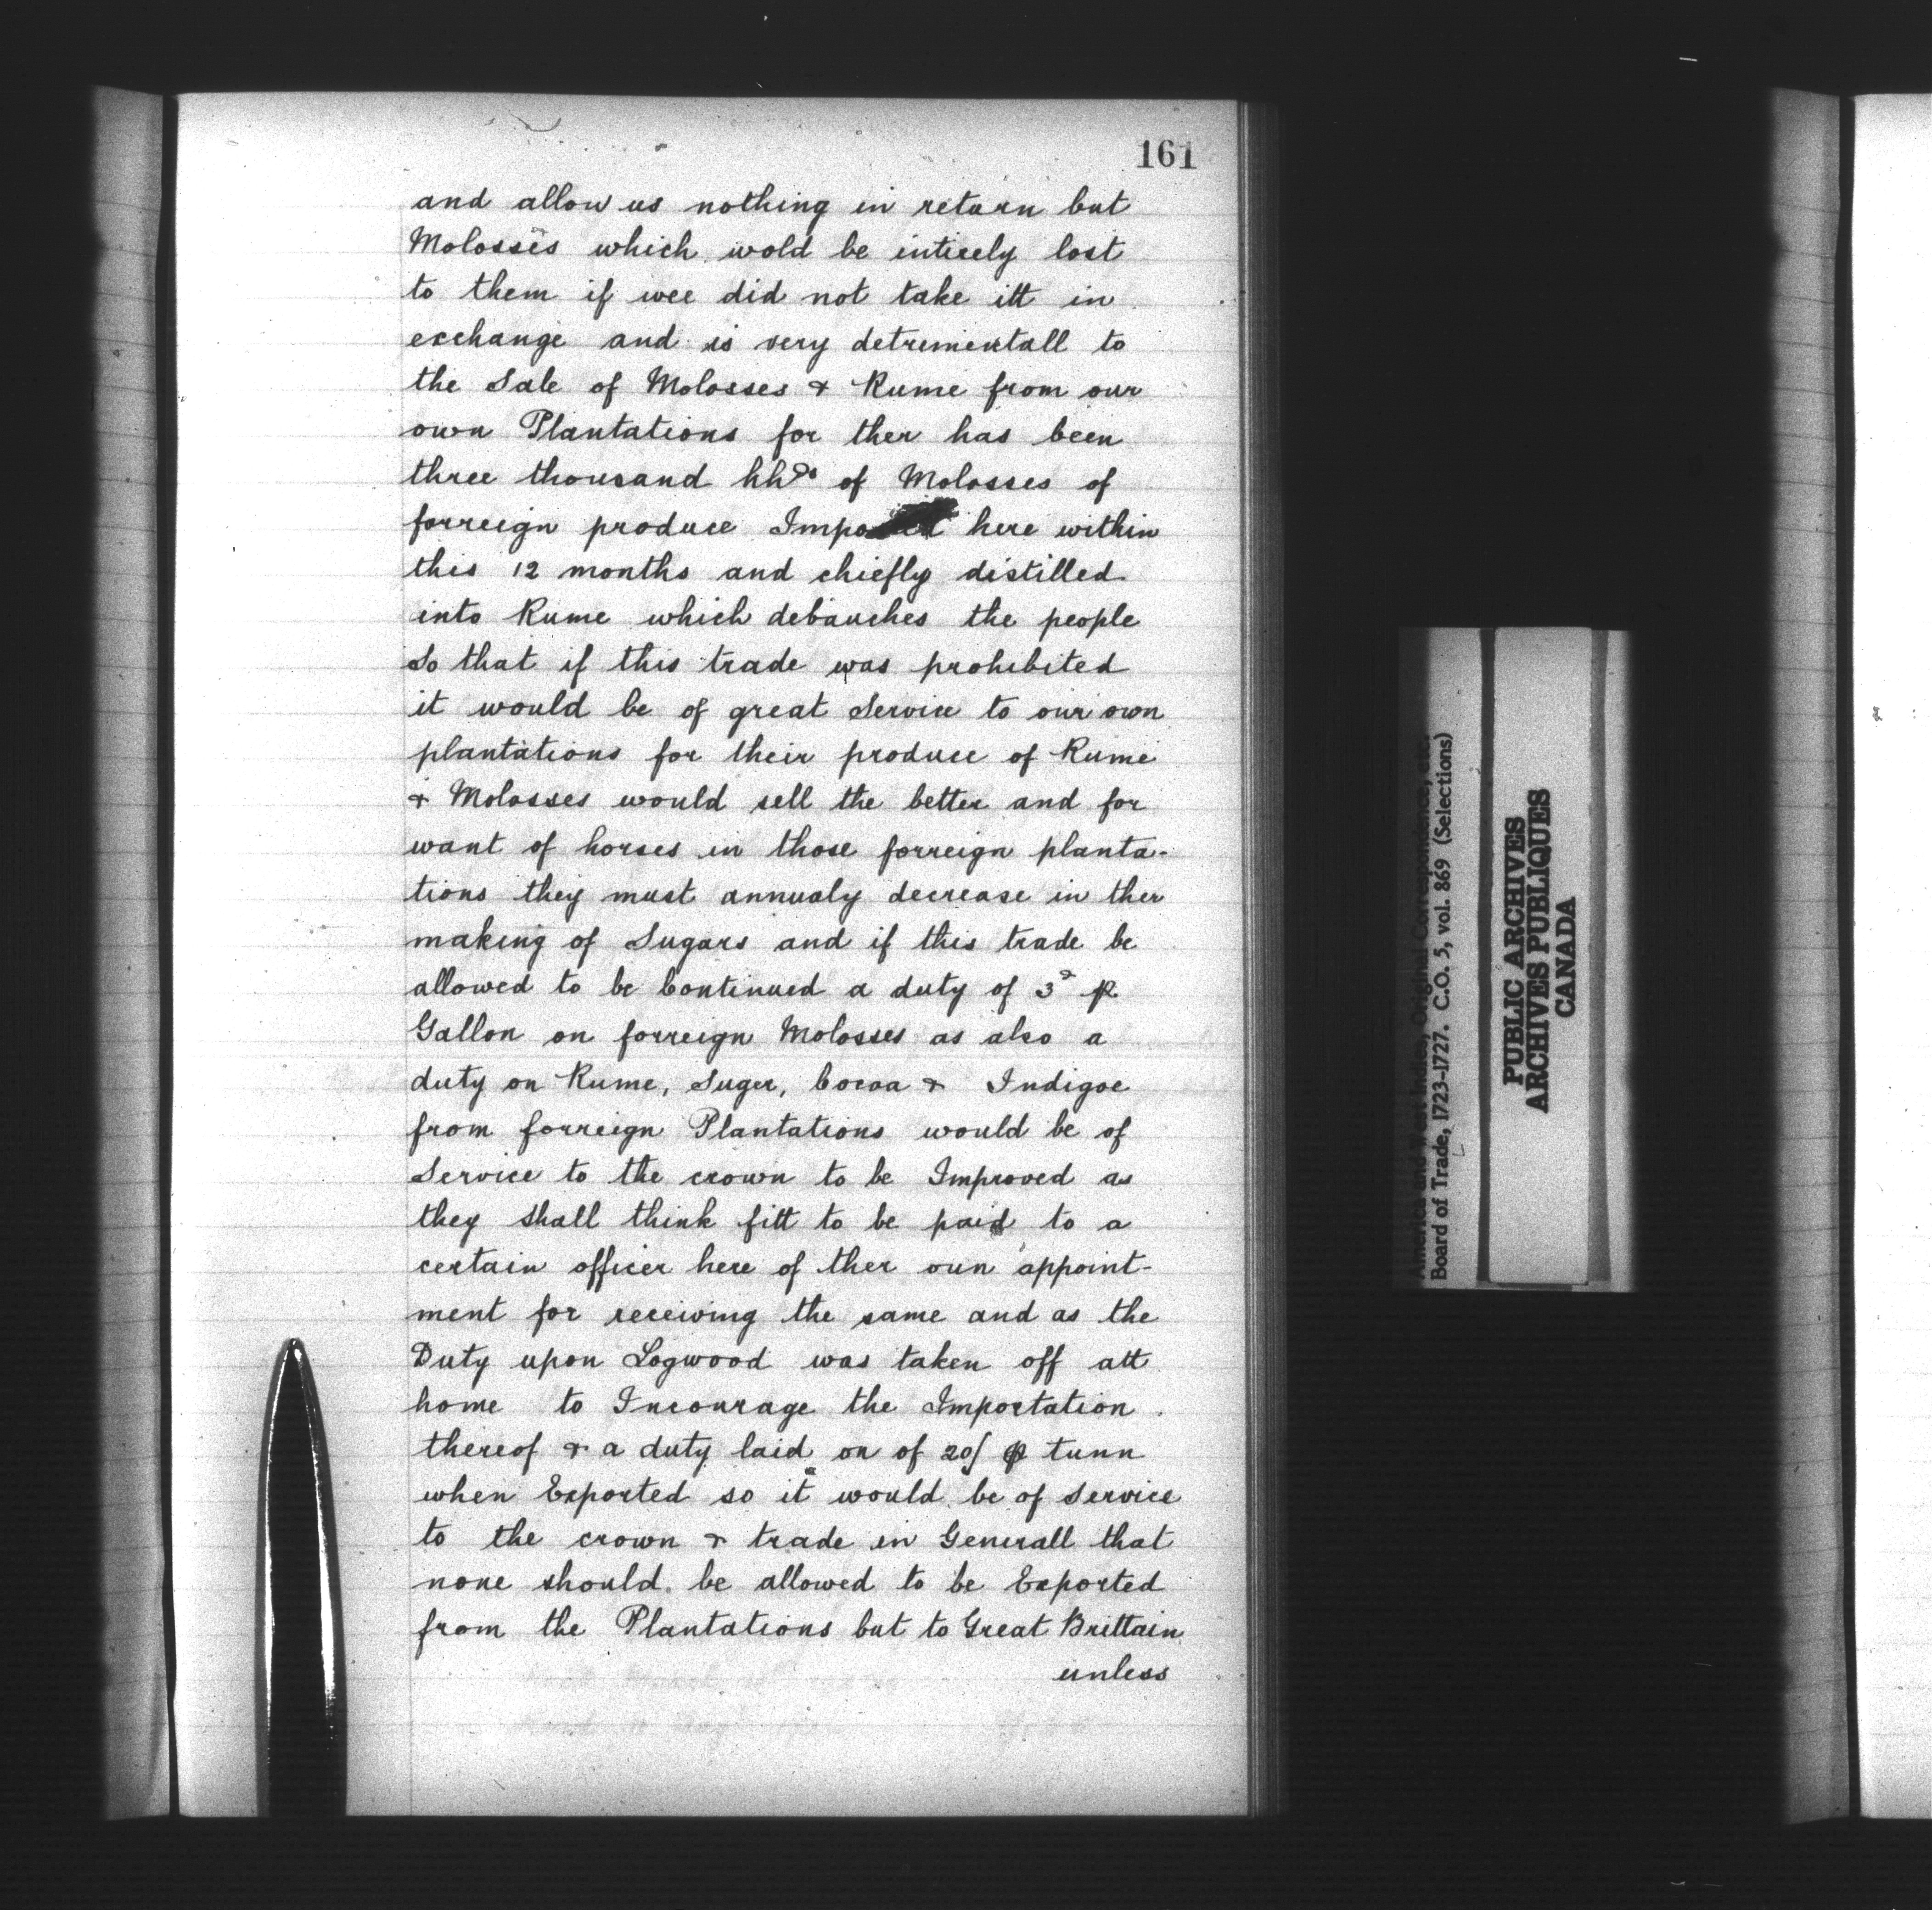 161
and allow us nothing in return but
Molosses which wold be intirely lost
to them if wee did not take itt in
exchange and is very detrementall to
the Sale of Molosses & Rume from our
own Plantations for ther has been
three thousand hhds of Molosses of
forreign produce Imported here within
this 12 months and chiefly distilled
into Rume which debauches the people
So that if this trade was prohibited
it would be of great Service to our own
plantations for their produce of Rume
& Molosses would sell the better and for
want of horses in those forreign planta-
tions they must annualy decrease in ther
making of Sugars and if this trade be
allowed to be Continued a duty of 3d p.
Gallon on forreign Molosses as also a
duty on Rume, Suger, Cocoa & Indigoe
from forreign Plantations would be of
Service to the crown to be Improved as
they shall think fitt to be paid to a
certain officer here of ther oun appoint-
ment for receiving the same and as the
Duty upon Logwood was taken off att
home to Incourage the Importation
thereof & a duty laid on of 20/ p tunn
when Exported so it would be of Service
to the crown & trade in Generall that
none should be allowed to be Exported
from the Plantations but to Great Brittain
unless
America and West Indies, Original Correspondence, etc.
Board of Trade, 1723-1727. C.O. 5, vol. 869 (Selections)
PUBLIC ARCHIVES
ARCHIVES PUBLIQUES
CANADA